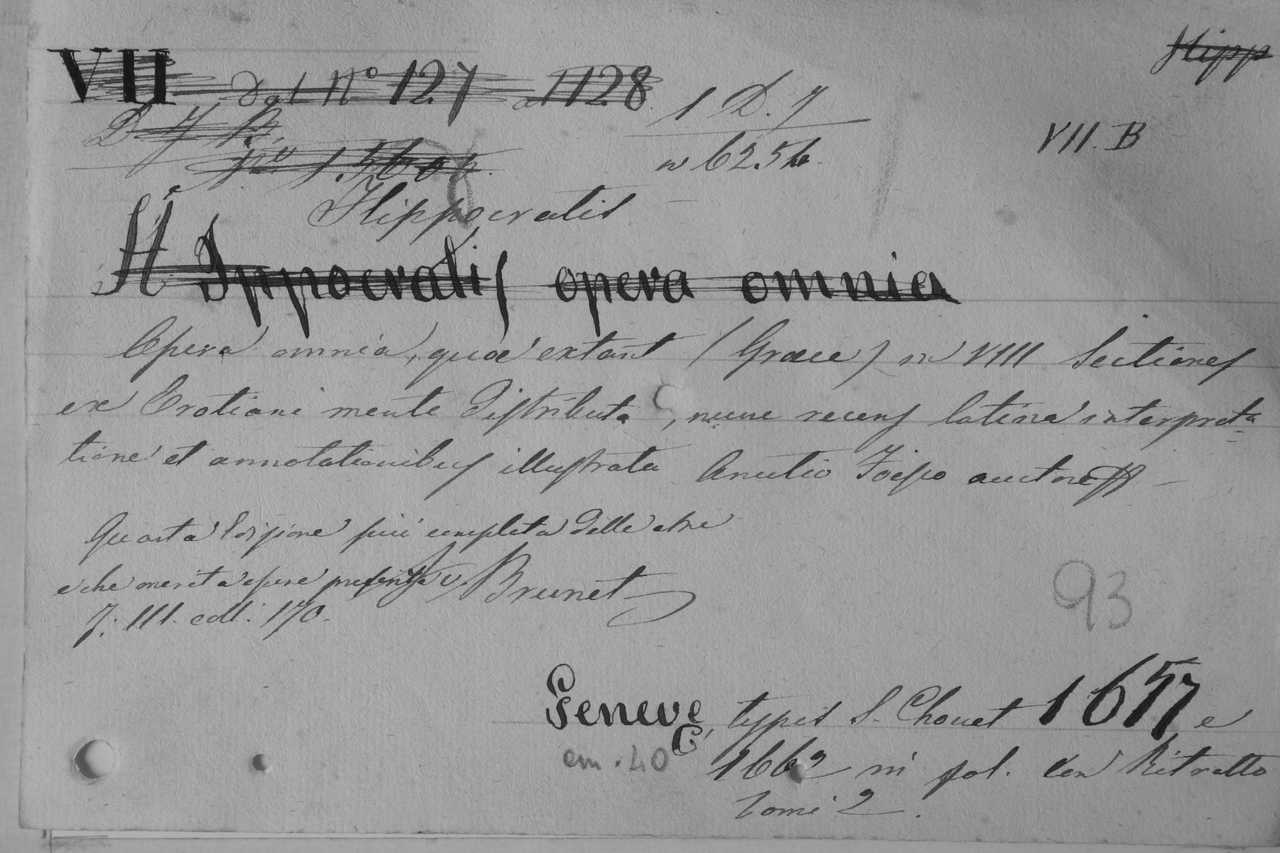 Hipp
VII dal Nº 127 al 128
1 D. 7
VII. B
D 7 B.
nº 1560
nº 6254.
Hippocratis
H Ippocratis opera omnia
Opera omnia, quae extant (Graece) in VIII Sectiones
ex Erotiani mente distributa, nunc recens latina interpreta
tione et annotationibus illustrata Anutio Foesio auctore
Quarta edizione più completa delle altre
e che merita essere preferita Brunet
T. III. coll. 170.
93
Geneve, typis S. Chouet 1657 e
cm. 40
1662 in fol. con Ritratto
Tomi 2.